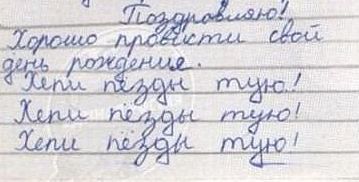 Поздравляю!
Хорошо провести свой
день рождения.
Хепи пёзды тую!
Хепи пёзды тую!
Хепи пёзды тую!